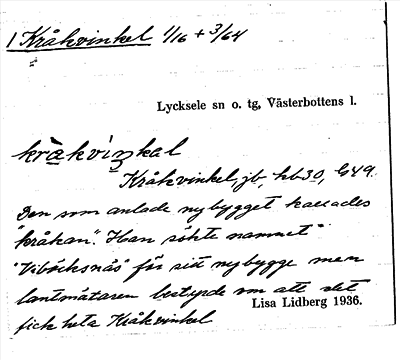 1 Kråkvinkel 1/16 + 3/64
Lycksele sn o. tg, Västerbottens l.
kràkviŋkal
Kråkvinkel, jb, hb30, G49.
Den som anlade nybygget kallades
"kråkan". Han sökte namnet
"Viböcksnäs" för sitt nybygge men
lantmätaren bestyrde om att det
Lisa Lidberg 1936.
fick heta Kråkvinkel